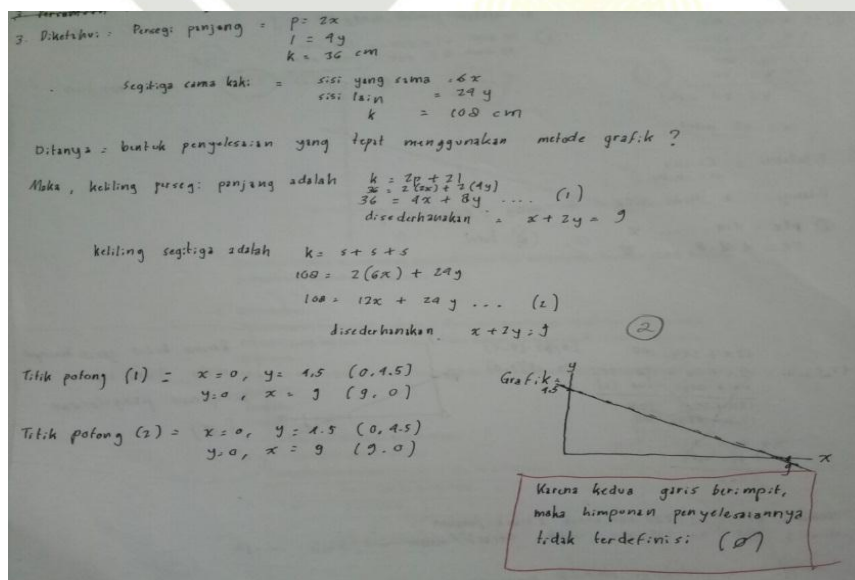 3. Diketahui : Persegi panjang = p = 2x
l = 4y
k = 36 cm
Segitiga sama kaki = sisi yang sama = 6x
sisi lain = 24 y
k = 108 cm
Ditanya = bentuk penyelesaian yang tepat menggunakan metode grafik ?
Maka, keliling persegi panjang adalah k = 2p + 2l
36 = 2 (2x) + 2 (4y)
36 = 4x + 8y .... (1)
disederhanakan = x + 2y = 9
keliling segitiga adalah k = s + s + s
108 = 2(6x) + 24y
108 = 12x + 24 y ... (2)
disederhanakan x + 2y = 9
2
Titik potong (1) = x = 0, y = 4,5 (0, 4.5)
y = 0, x = 9 (9, 0)
Titik potong (2) = x = 0, y = 4.5 (0, 4.5)
y = 0, x = 9 (9.0)
Grafik =
y
4.5
9
x
Karena kedua garis berimpit,
maka himpunan penyelesaiannya
tidak terdefinisi (∅)